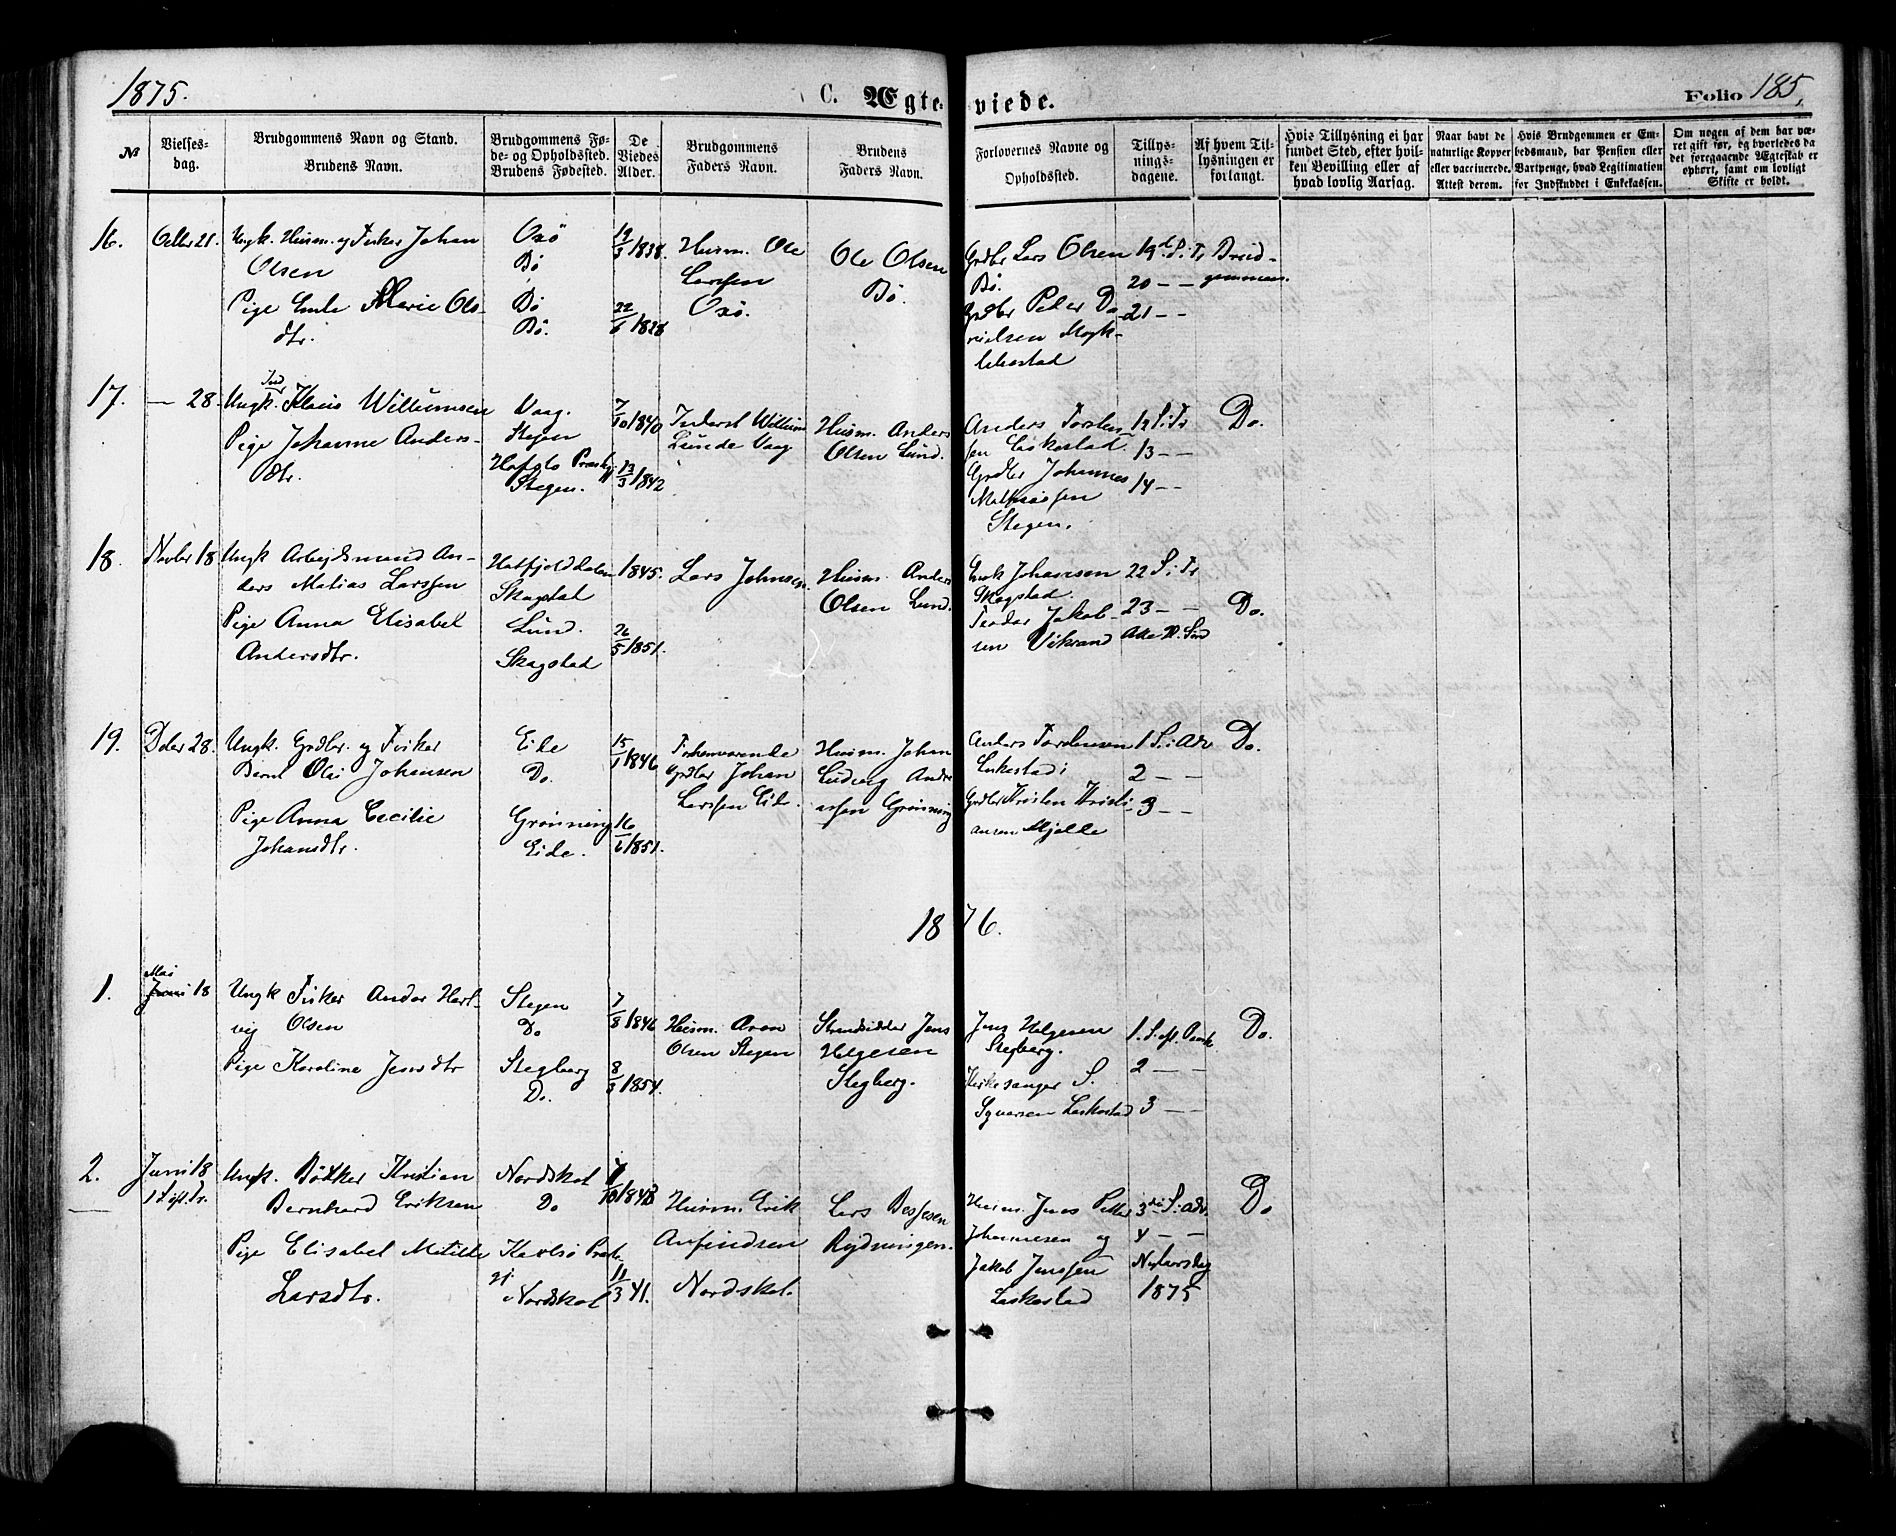 1875.
C. Ægteviede.
Folio 185.
№
Vielsesdag.
Brudgommens Navn og Stand.
Brudens Navn.
Brudgommens Føde- og Opholdssted.
Brudens Fødested.
De Viedes Alder.
Brudgommens Faders Navn.
Brudens Faders Navn.
Forlovernes Navne og Opholdssted.
Tillysningsdagene.
Af hvem Tillysningen er forlangt.
Hvis Tillysning ei har fundet Sted, efter hvilken Bevilling eller af hvad lovlig Aarsag.
Naar havt de naturlige Kopper eller vaccinerede. Attest derom.
Hvis Brudgommen er Embedsmand, har Pension eller Vartpenge, hvad Legitimation for Indskuddet i Enkekassen.
Om nogen af dem har været gift før, og hvorledes da det foregaaende Ægteskab er ophørt, samt om lovligt Skifte er holdt.
16.
Octbr 21.
Ungk. Husm. og Fisker Johan
Olsen
Pige Marie Ols-
dtr.
Bø
Bø
Bø.
19/3 1838.
22/6 1828
Husm. Ole
Larssen
Ole Olsen
Bø.
Grdbr Lars Olsen
Bø.
Grdbr Peder Da-
nielsen Myk-
lebostad
19d. S. i Tr
20 — —
21 — —
Brud-
gommen.
17.
— 28.
Ungk. Ind. Klaus Willumsen
Pige Johanne Anders-
dtr.
Vaag.
Stegen
Stegen.
7/10 1840
13/3 1842
Inderst Willum
Lunde Vaag
Husm. Anders
Olsen Lund.
Anders Torsten-
sen Leskestad.
Grdbr Johannes
Mathiassen
Stegen.
19 S. i Tr
13 — —
14 — —
Do.
18.
Novbr 18
Ungk Arbejdsmand An-
ders Matias Larssen
Pige Anna Elisabet
Andersdtr.
Hatfjelddalen
Skagstad
Lund.
Skagstad
1845.
26/5 1851.
Lars Johnsen.
Husm. Anders
Olsen Lund.
Johansen
Skagstad.
Teodor Jakob-
sen Vikran
22 S. i Tr
23 — —
Do.
19.
Dcbr 28.
Ungk. Grdbr. og Fisker
Bernt Olai Johansen
Pige Anna Cecilie
Johansdtr.
Eide
Do.
Grønning
Eide.
15/1 1846
16/6 1851.
Forhenværende
Grdbr Johan
Larssen Eide.
Husm. Johan
Ludvig Andre-
assen Grønning
Anders Torstensen
Leskestad
Grdbr Kristen Kristi-
ansen Mjelde
1 S. i Adv
2 — —
3 — —
Do.
1876.
1.
Mai 18
Ungk Fisker Andor Hart-
vig Olsen
Pige Karoline Jensdtr
Stegen
Do
Stegberg
Do.
7/8 1846
8/3 1854.
Husm. Aron
Olsen Stegen
Strandsidder Jens
Helgesen
Stegberg.
Jens Helgesen
Stegberg.
Kirkesanger S.
Syversen Leskestad
1. S. eft. Paask
2 — —
3 — —
Do.
2.
Juni 18
1 S. eft. Tr.
Ungk. Bødker Kristian
Bernhard Eriksen
Pige Elisabet Matilde
Larsdtr.
Nordskot
Do
Nordskot
11/3 41.
Husm. Erik
Anfindsen
Nordskot.
Lars Bessesen
Rydningen.
Husm. Jens Petter
Johannesen og
Jakob Jenssen
Leskestad
3die S. i Adv.
4 — —
Nytaarsdag
1875
Do